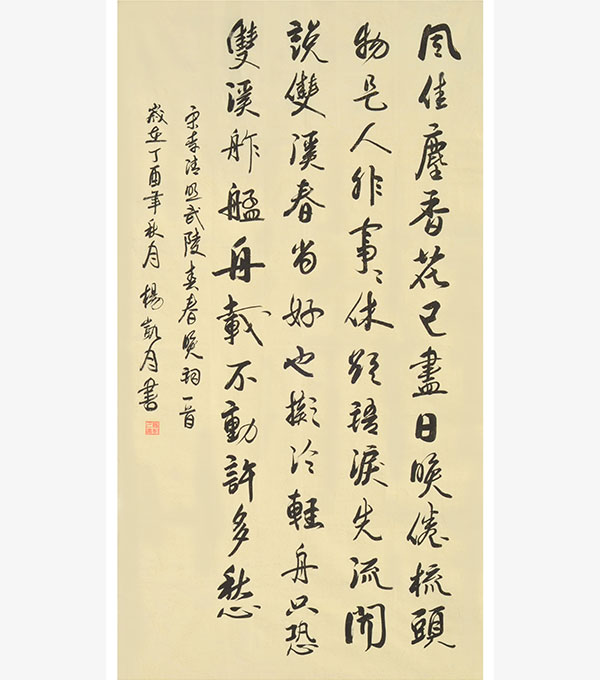 風住塵香花已盡日晚倦梳頭
物是人非事〻休欲語淚先流聞
說雙溪春尚好也擬泛輕舟只恐
雙溪舴艋舟載不動許多愁
宋李清照武陵春春晚詞一首
歲在丁酉年秋月 楊凱月書